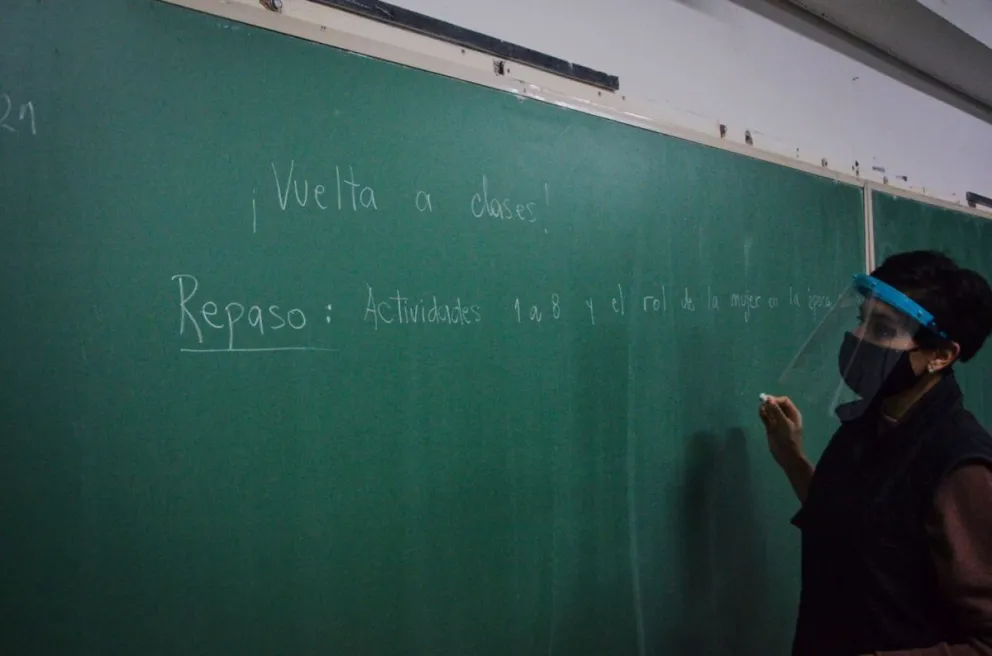 21
¡Vuelta a clases!
Repaso: Actividades 1 a 8 y el rol de la mujer en la época